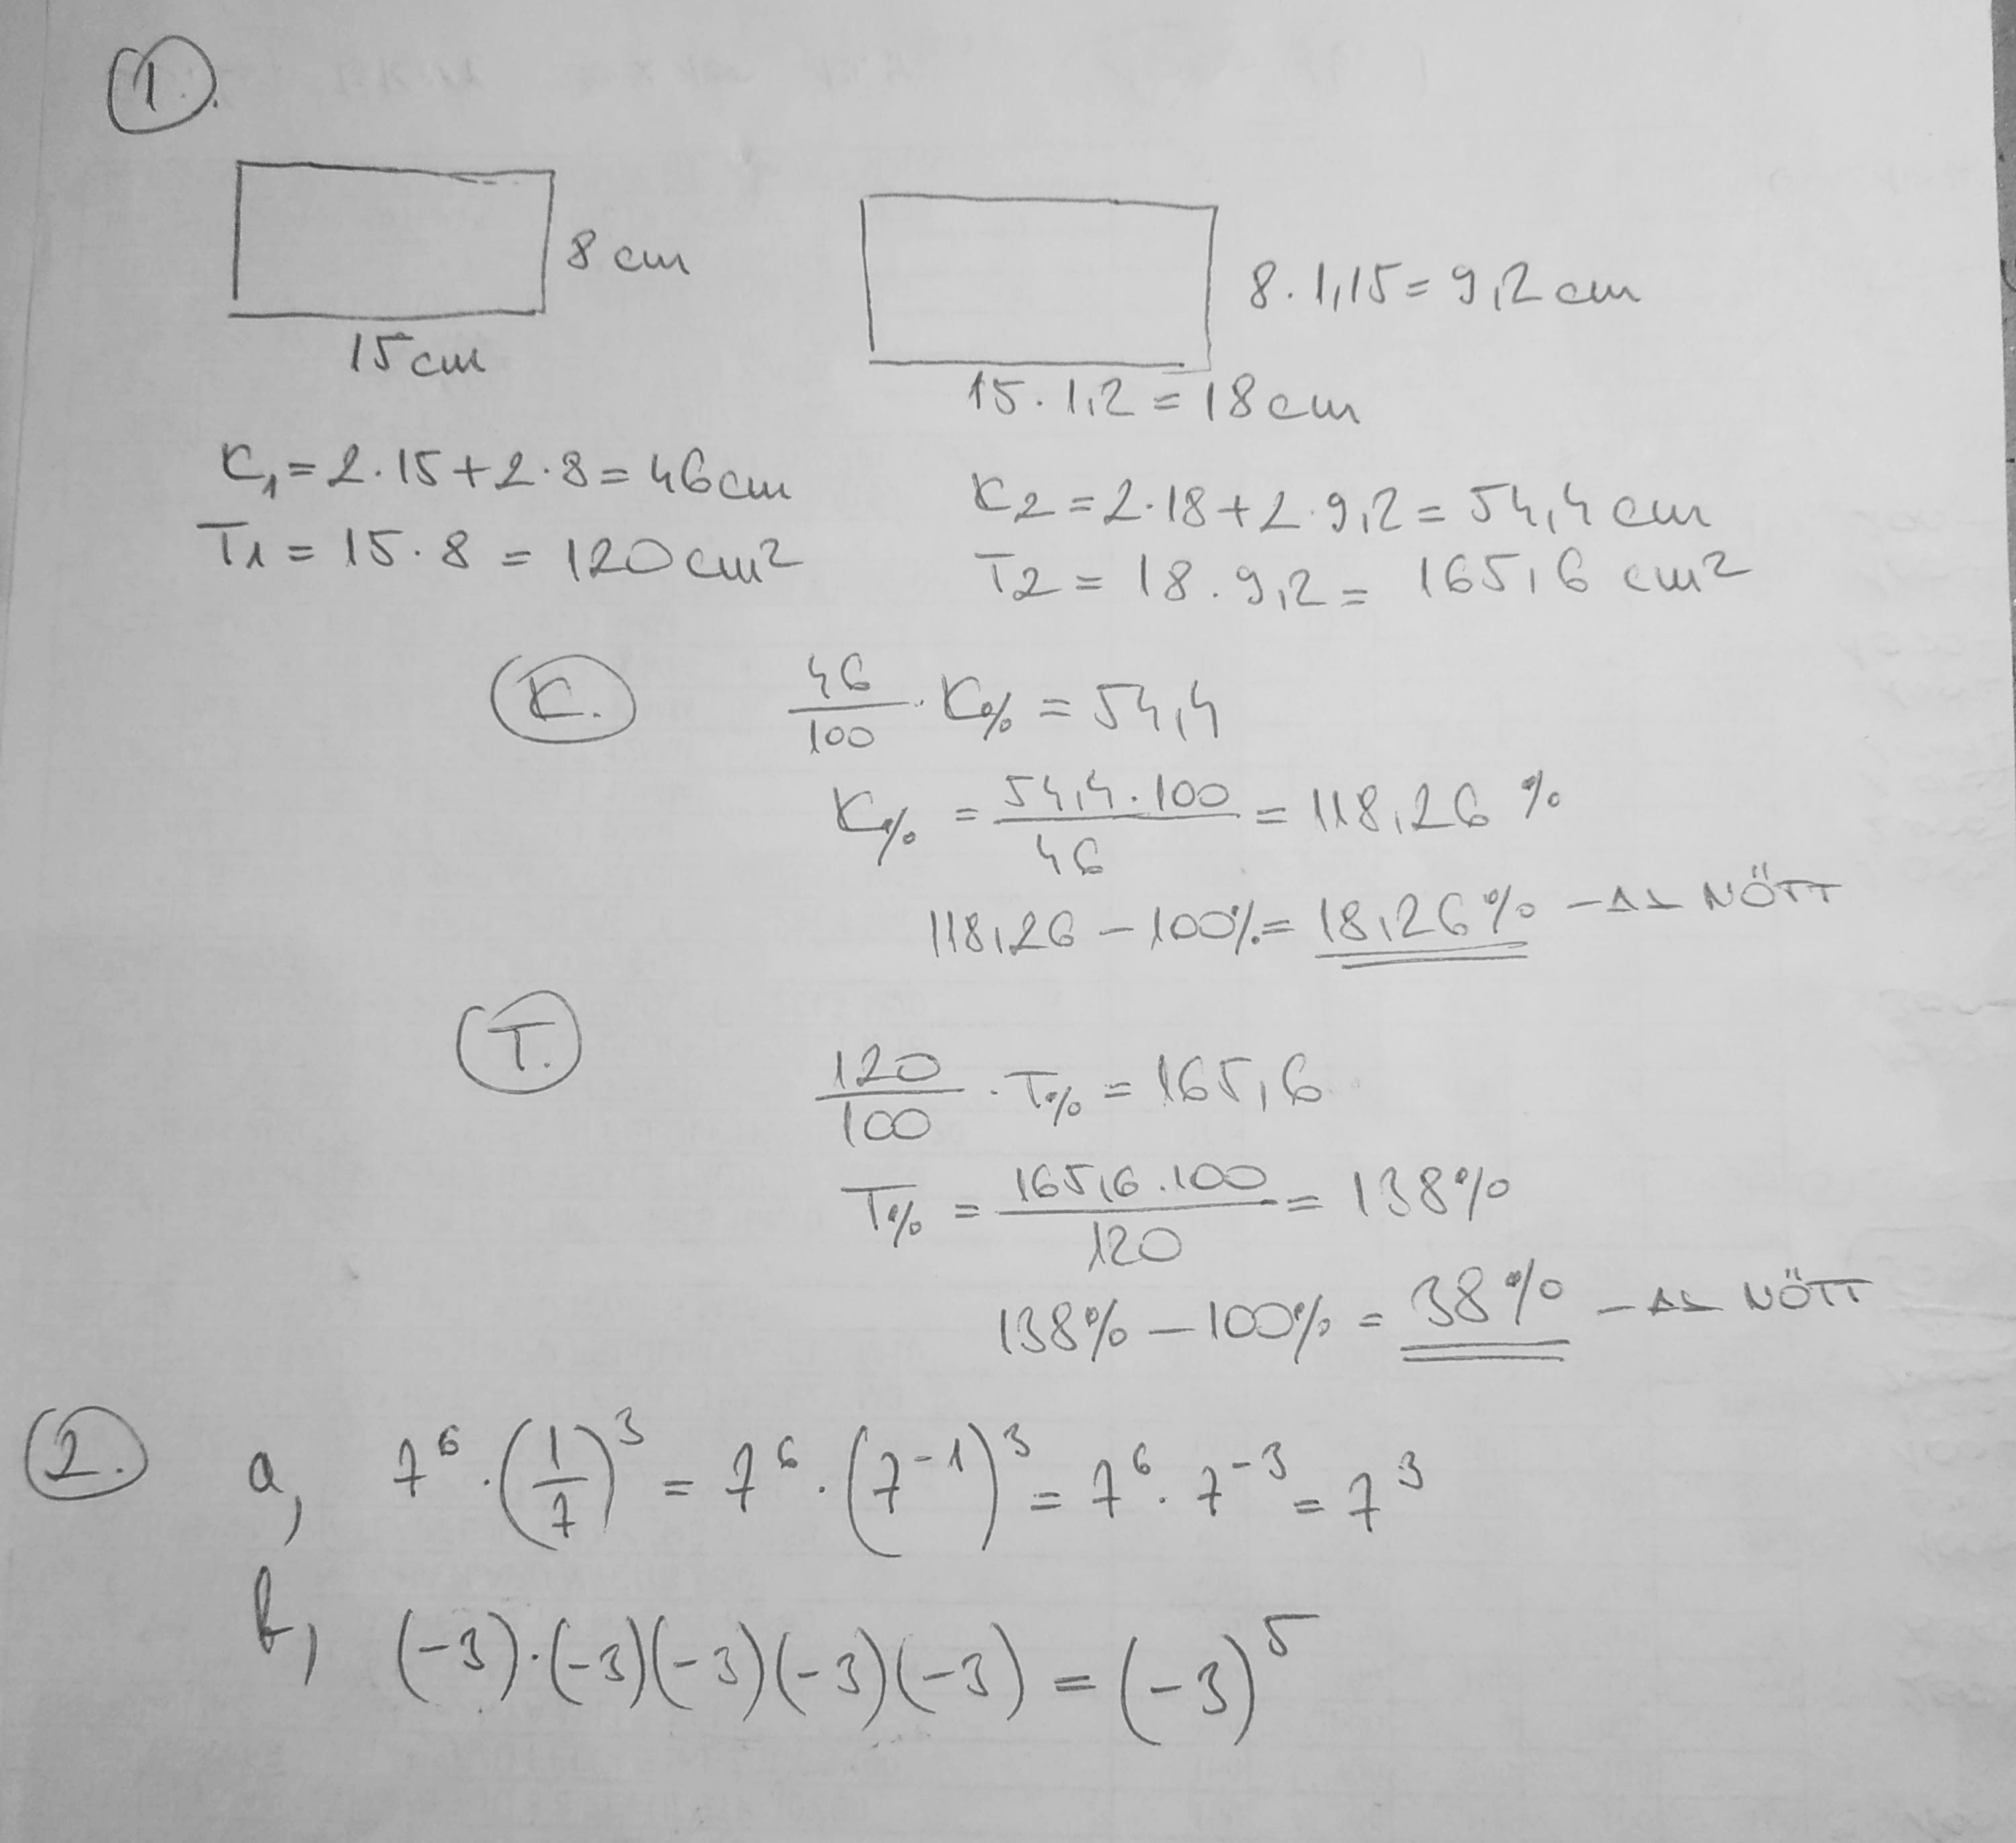 1.
8 cm
15 cm
8 · 1,15 = 9,2 cm
15 · 1,2 = 18 cm
K₁ = 2 · 15 + 2 · 8 = 46 cm
T₁ = 15 · 8 = 120 cm²
K₂ = 2 · 18 + 2 · 9,2 = 54,4 cm
T₂ = 18 · 9,2 = 165,6 cm²
K.
46/100 · K% = 54,4
K% = 54,4 · 100 / 46 = 118,26 %
118,26 – 100% = 18,26% – NÖTT
T.
120/100 · T% = 165,6
T% = 165,6 · 100 / 120 = 138%
138% – 100% = 38% – NÖTT
2.
a, 7⁶ · (1/7)³ = 7⁶ · (7⁻¹)³ = 7⁶ · 7⁻³ = 7³
b, (-3) · (-3)(-3)(-3)(-3) = (-3)⁵